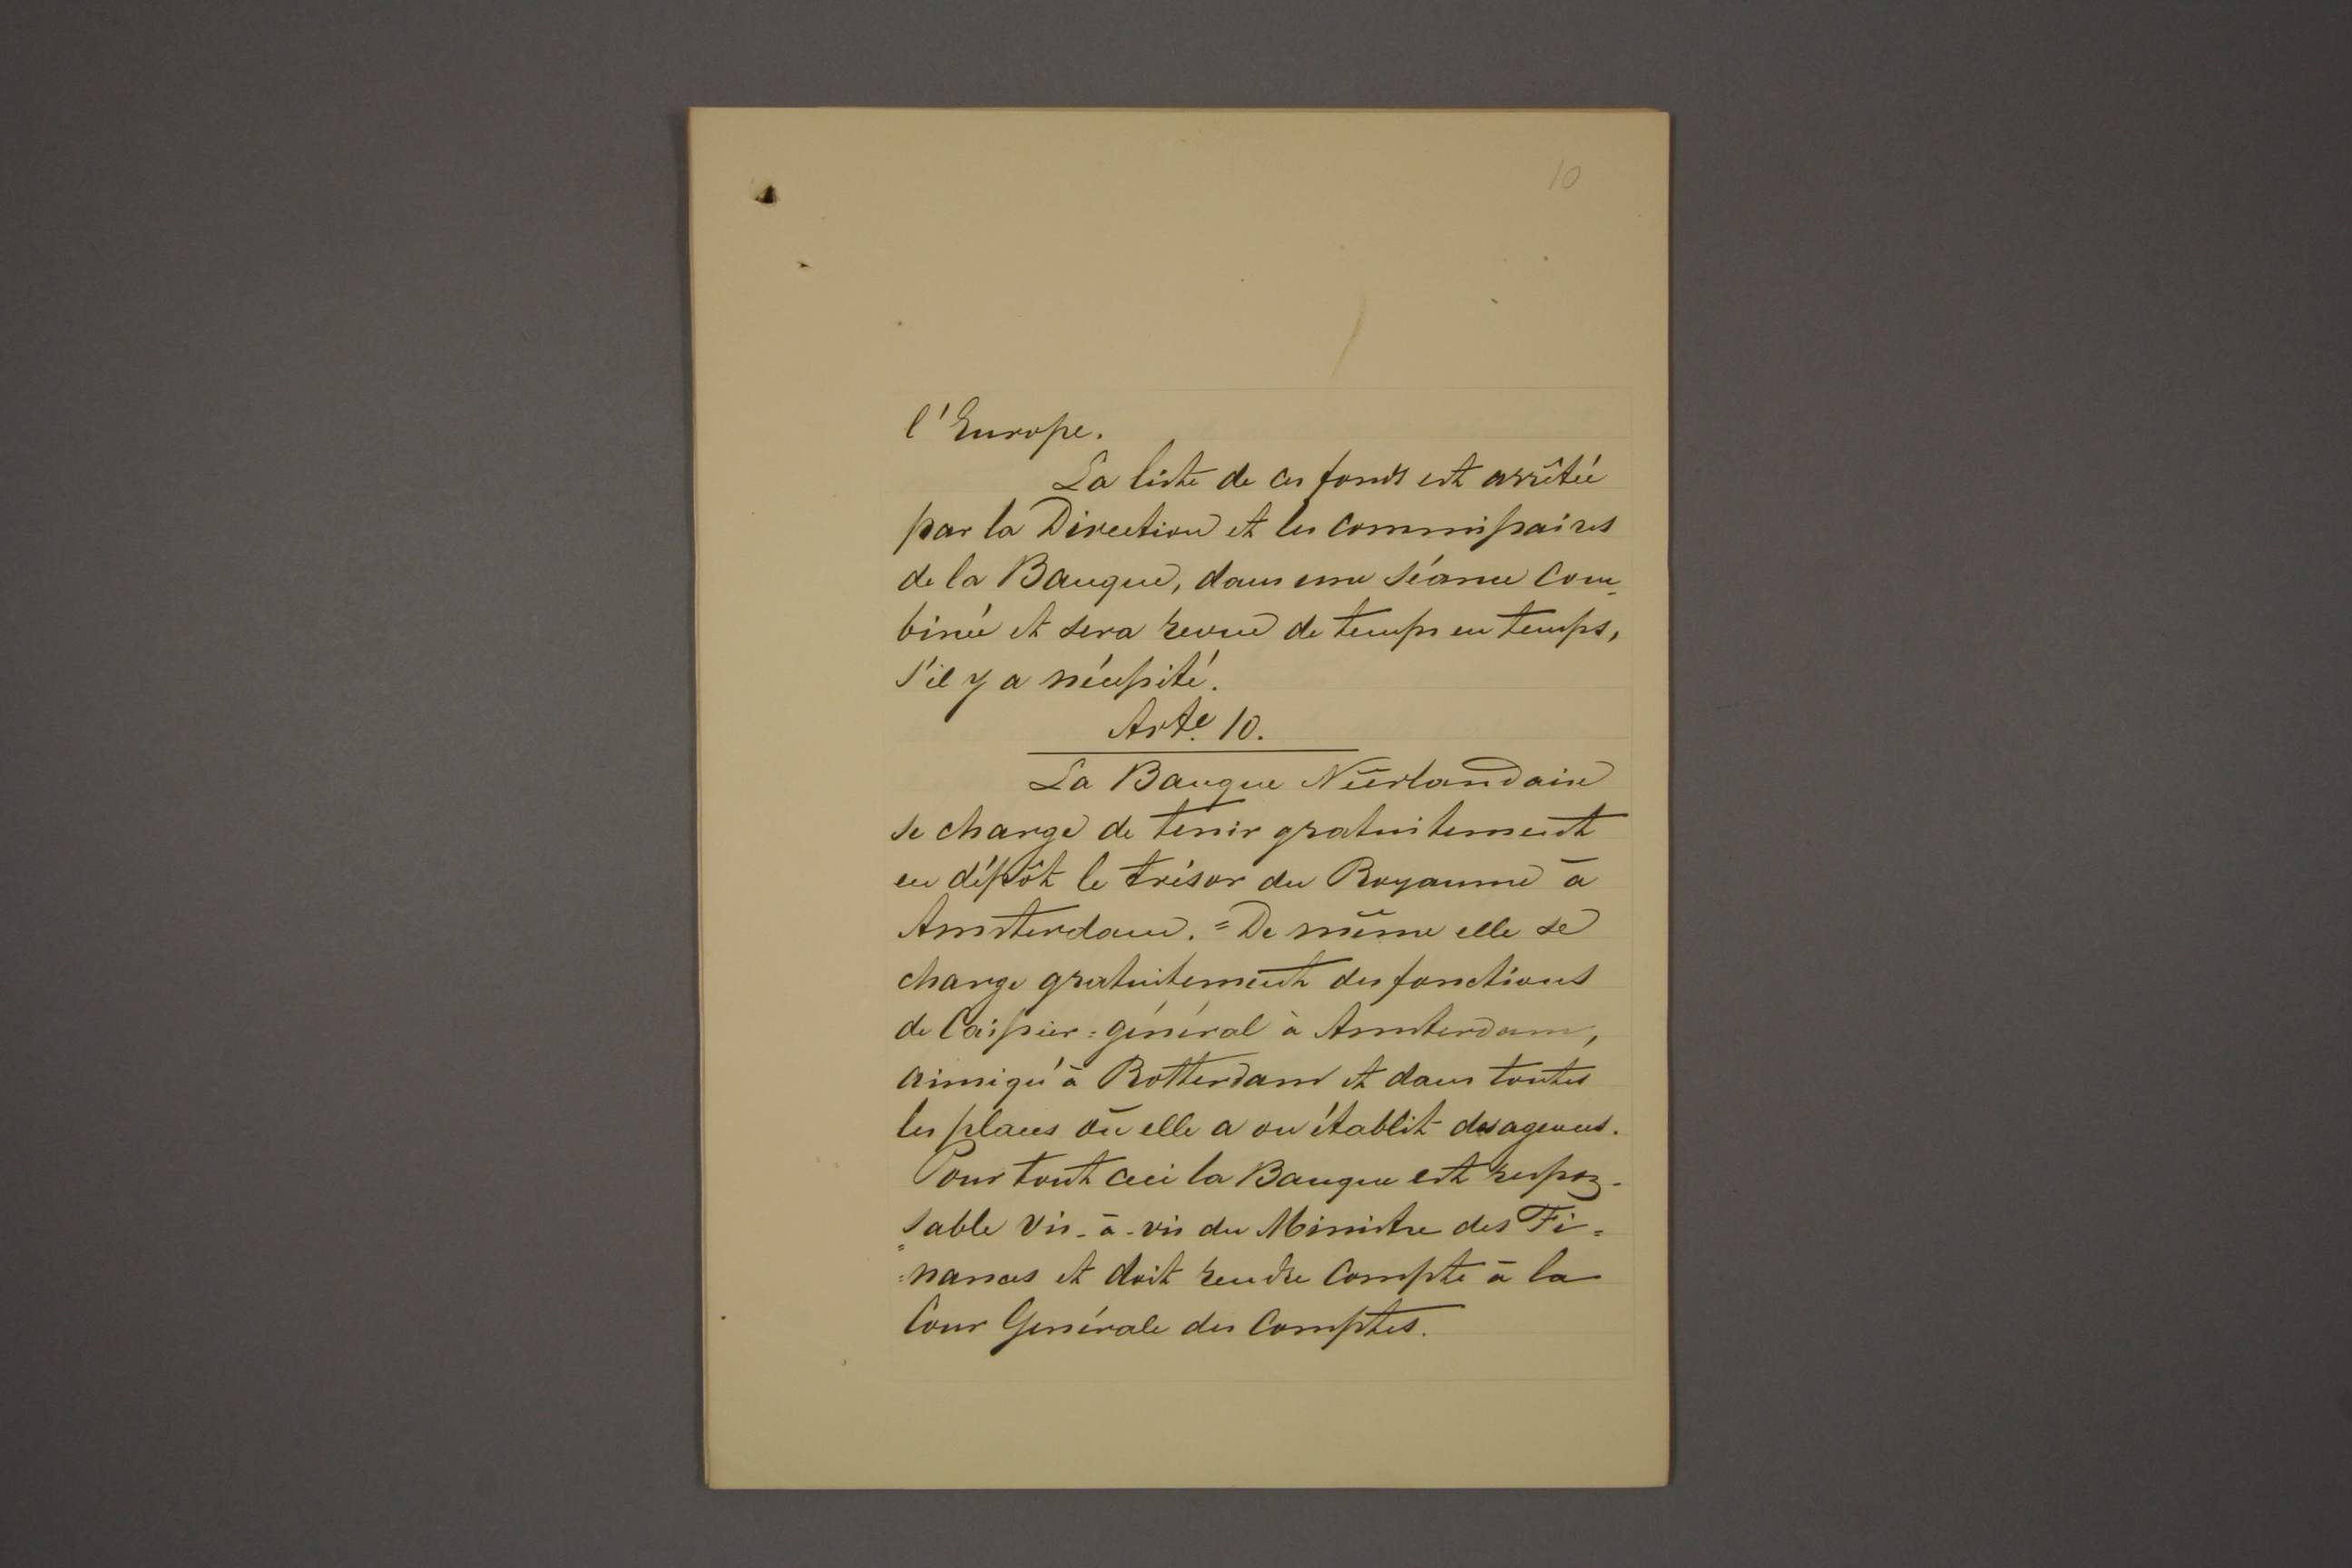 10
l'Europe.
La liste de ces fonds est arrêtée
par la Direction et les commissaires
de la Banque, dans une séance com-
binée et sera revue de temps en temps,
s'il y a nécessité.
Arte. 10.
La Banque Néerlandaise
se charge de tenir gratuitement
en dépôt le trésor du Royaume à
Amsterdam. = De même elle se
charge gratuitement des fonctions
de Caissier=général à Amsterdam,
ainsiqu'à Rotterdam et dans toutes
les places où elle a ou établit des agences.
Pour tout ceci la Banque est respon-
=sable vis-à-vis du Ministre des Fi=
=nances et doit rendre compte à la
Cour Générale des Comptes.